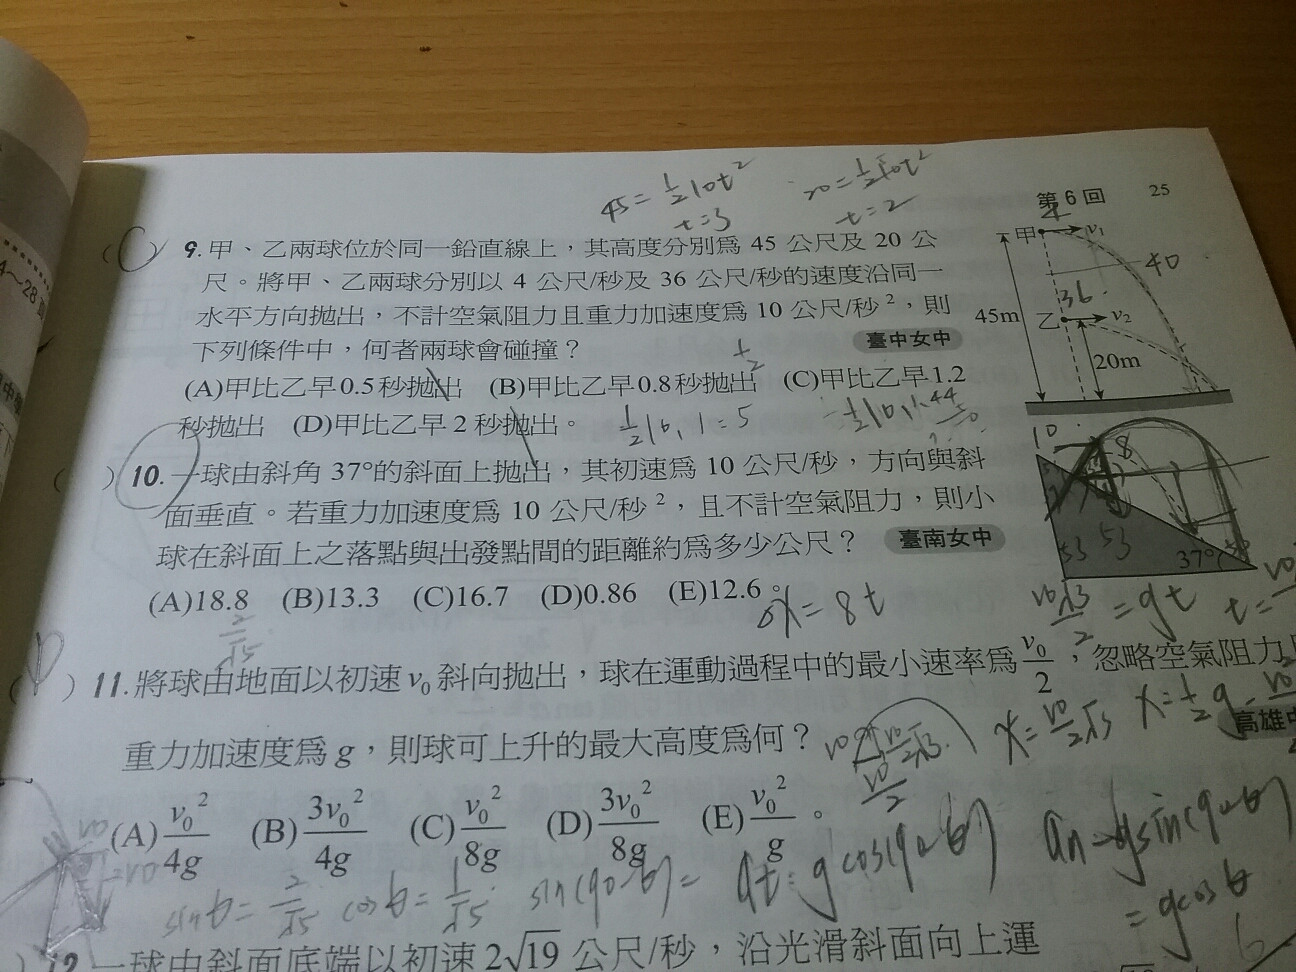 第6回 25
45 = 1/2 10t² 20 = 1/2 10t²
t=3 t=2
(C) 9.甲、乙兩球位於同一鉛直線上，其高度分別為 45 公尺及 20 公
尺。將甲、乙兩球分別以 4 公尺/秒及 36 公尺/秒的速度沿同一
水平方向拋出，不計空氣阻力且重力加速度為 10 公尺/秒²，則
下列條件中，何者兩球會碰撞？ 臺中女中
(A)甲比乙早0.5秒拋出 (B)甲比乙早0.8秒拋出 (C)甲比乙早1.2
秒拋出 (D)甲比乙早 2 秒拋出。
甲 v₁
40
36
乙 v₂
45m
20m
( ) 10.一球由斜角 37°的斜面上拋出，其初速為 10 公尺/秒，方向與斜
面垂直。若重力加速度為 10 公尺/秒²，且不計空氣阻力，則小
球在斜面上之落點與出發點間的距離約為多少公尺？ 臺南女中
(A)18.8 (B)13.3 (C)16.7 (D)0.86 (E)12.6。
10
8
53 53
37°
x = 8t
v₀√3/2 = gt
2/√5
( ) 11.將球由地面以初速 v₀ 斜向拋出，球在運動過程中的最小速率為 v₀/2，忽略空氣阻力
重力加速度為 g，則球可上升的最大高度為何？ 高雄
(A) v₀²/4g (B) 3v₀²/4g (C) v₀²/8g (D) 3v₀²/8g (E) v₀²/g。
sinθ = 2/√5 cosθ = 1/√5 sin(90-θ) = at = gcos(90-θ) an = gsin(90-θ)
= gcosθ
) 12.一球由斜面底端以初速 2√19 公尺/秒，沿光滑斜面向上運